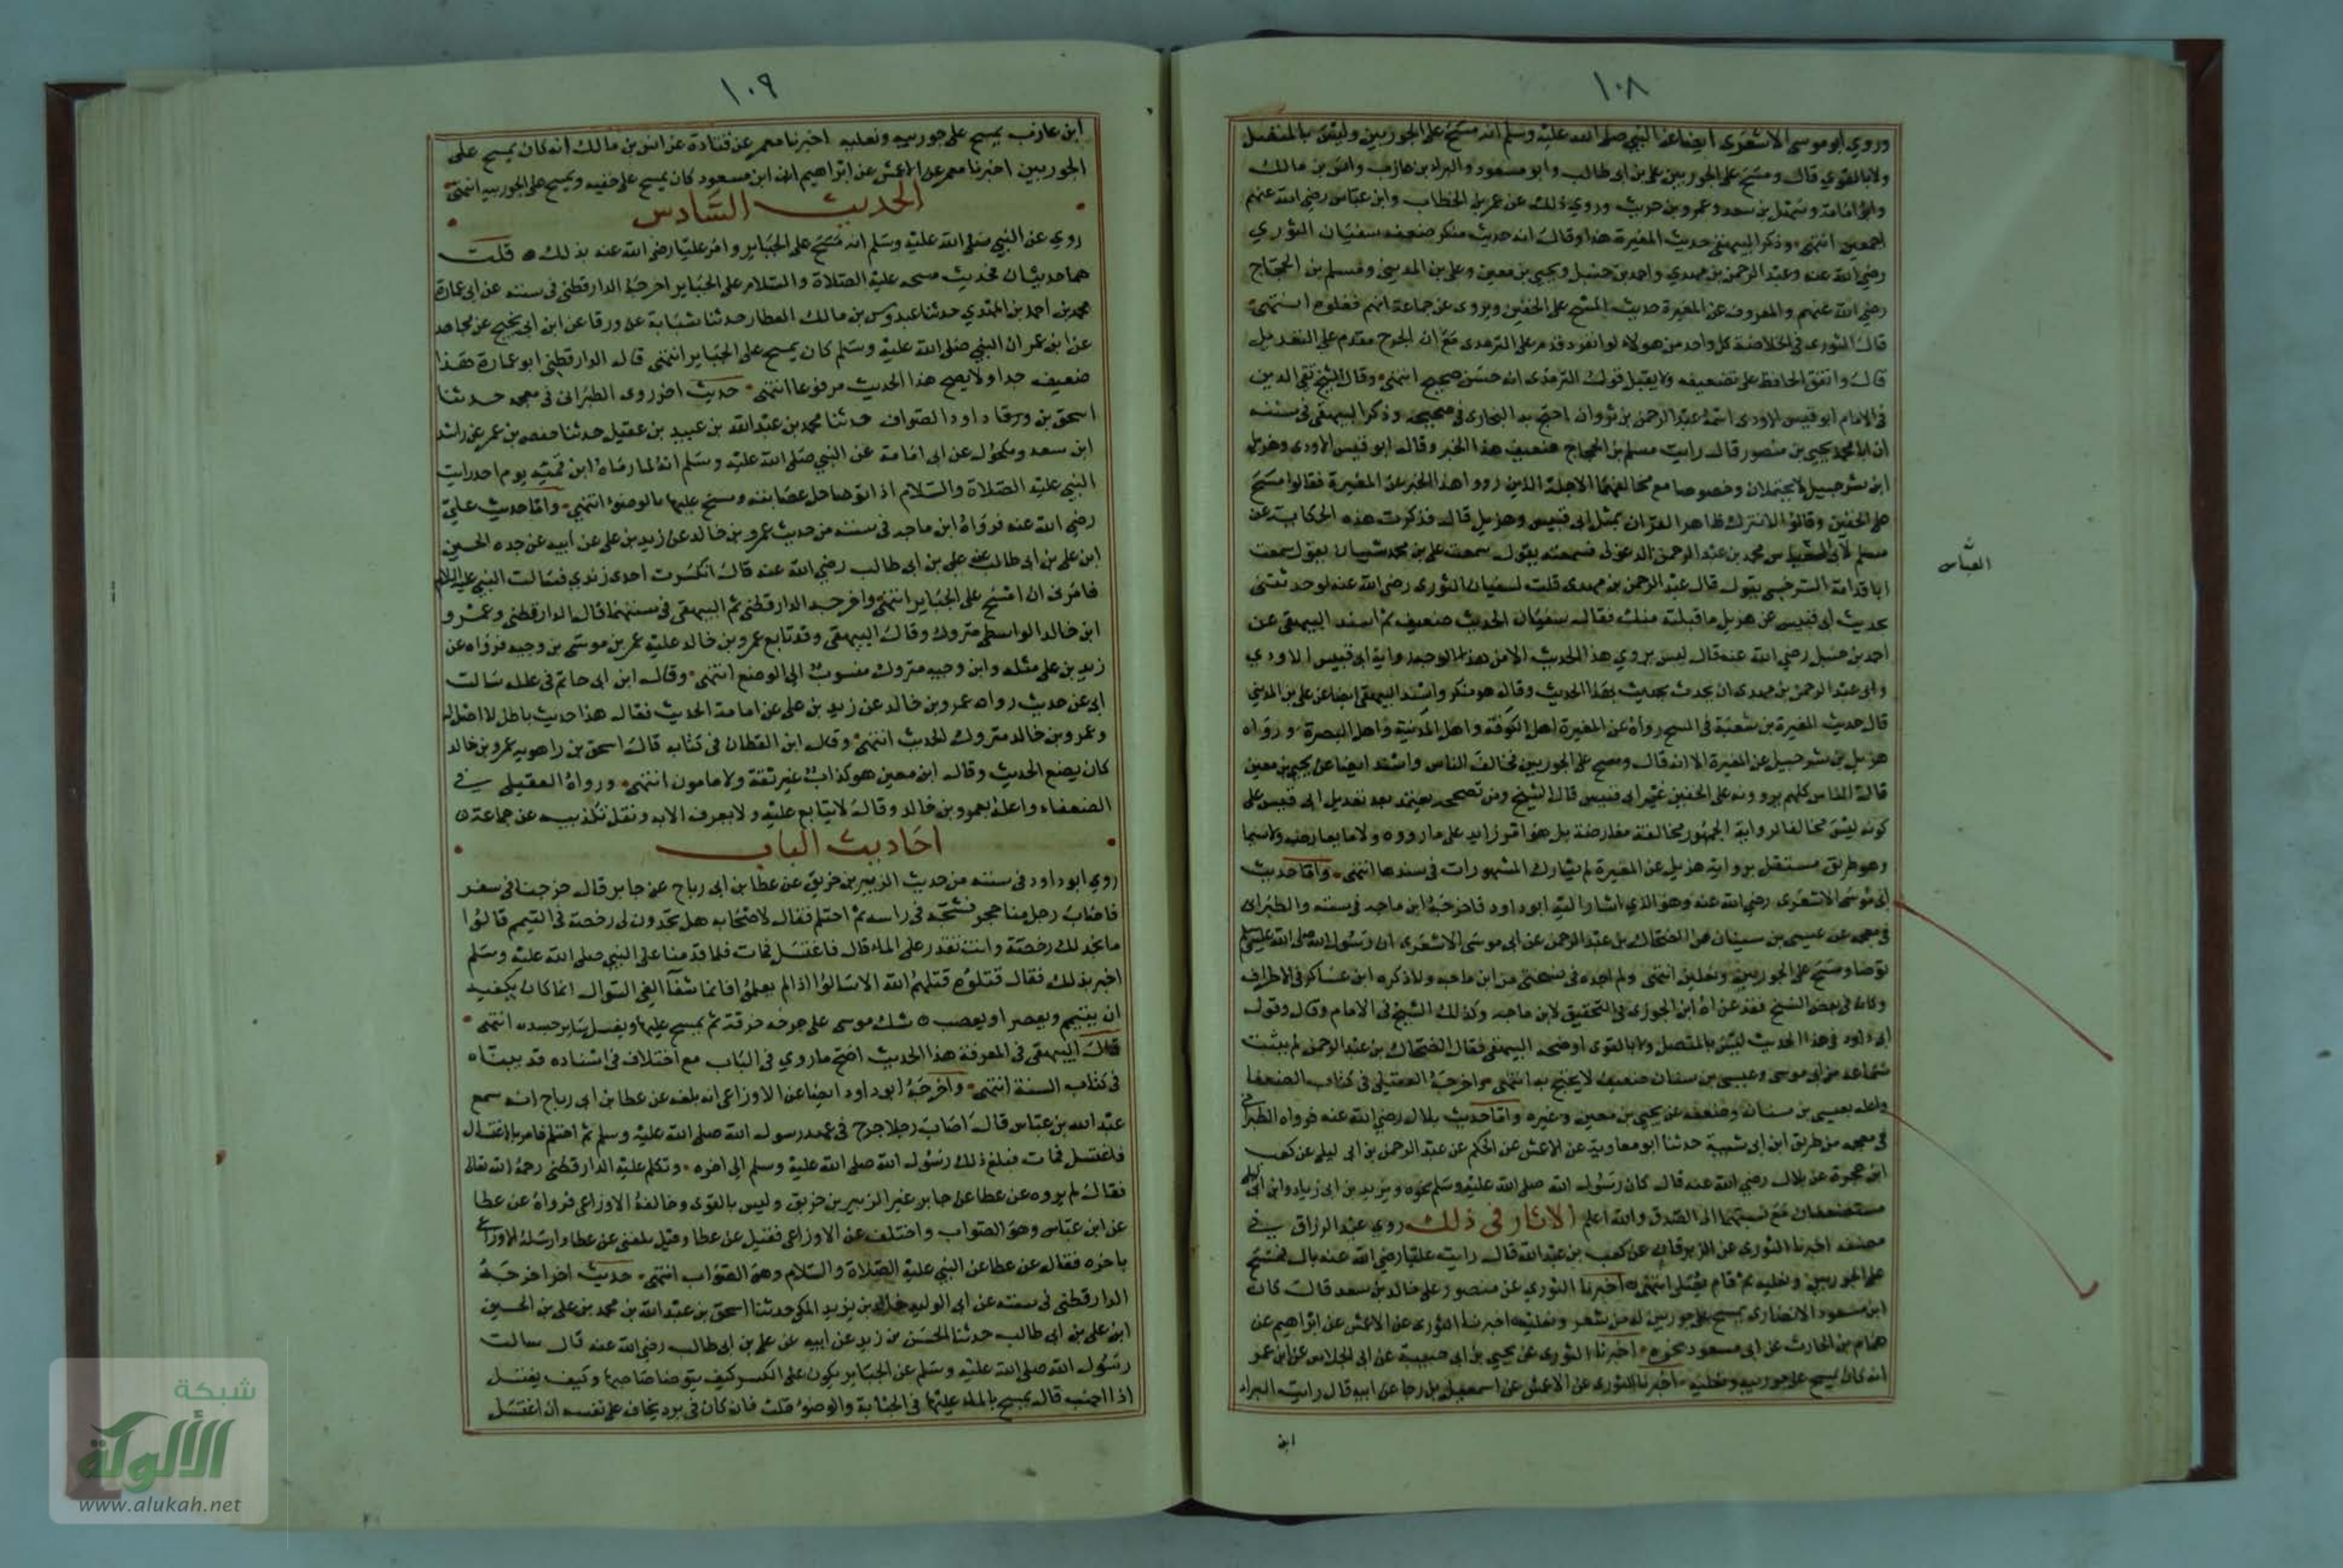 ١٠٨
وروي ابو موسى الاشعرى ايضا عن النبي صلى الله عليه وسلم انه مسح على الجوربين وليس بالمتصل
ولا بالقوي قال ومسح على الجوربين على بن ابى طالب وابو مسعود والبراء بن عازب وانس بن مالك
وابو امامة وسهل بن سعد وعمرو بن حريث وروي ذلك عن عمر بن الخطاب وابن عباس رضي الله عنهم
اجمعين انتهى وذكر البيهقي حديث المغيرة هذا وقال انه حديث منكر ضعفه سفيان الثوري
رضي الله عنه وعبد الرحمن بن مهدي واحمد بن حنبل ويحيى بن معين وعلى بن المديني ومسلم بن الحجاج
رضي الله عنهم والمعروف عن المغيرة حديث المسح على الخفين ويروى عن جماعة انهم فعلوه انتهى
قال النووى فى الخلاصة كل واحد من هولاء لو انفرد قدم على الترمذى مع ان الجرح مقدم على التعديل
قال واتفق الحافظ على تضعيفه ولا يقبل قول الترمذى انه حسن صحيح انتهى وقال الشيخ تقى الدين
فى الامام ابو قيس الاودى اسمه عبد الرحمن بن ثروان احتج به البخارى فى صحيحه وذكر البيهقى فى سننه
ان ابا محمد يحيى بن منصور قال رايت مسلم بن الحجاج ضعف هذا الخبر وقال ابو قيس الاودى وهزيل
ابن شرحبيل لا يحتملان وخصوصا مع مخالفتهما الاجلة الذين رووا هذا الخبر عن المغيرة فقالوا مسح
على الخفين وقالوا لا نترك ظاهر القران بمثل ابى قيس وهزيل قال فذكرت هذه الحكاية عن
مسلم لابى محمد بن عبد الرحمن الدغولى فسمعته يقول سمعت على بن محمد شيبان يقول سمعت
العباس
ابا قدامة السرخسى يقول قال عبد الرحمن بن مهدى قلت لسفيان الثورى رضى الله عنه لو حدثتنى
بحديث ابى قيس عن هزيل ما قبلته منك فقال سفيان الحديث ضعيف ثم اسند البيهقى عن
احمد بن حنبل رضي الله عنه قال ليس يروي هذا الحديث الا من هذا الوجه رواية ابى قيس الاودي
وابى عبد الرحمن بن مهدى ان يحدث بهذا الحديث وقال هو منكر واسند البيهقى ايضا عن على بن المدينى
قال حديث المغيرة بن شعبة فى المسح رواه عن المغيرة اهل الكوفة واهل المدينة واهل البصرة ورواه
هزيل بن شرحبيل عن المغيرة الا انه قال ومسح على الجوربين فخالف الناس واسند ايضا عن يحيى بن معين
قال الناس كلهم يروونه على الخفين غير ابى قيس قال الشيخ ومن تصححه يعتمد بعد تعديل ابى قيس على
كونه ليس مخالفا لرواية الجمهور مخالفة معارضة بل هو امر زايد على ما رووه ولا ما يعارضه ولا سيما
وهو طريق مستقل برواية هزيل عن المغيرة لم يشارك المشهورات فى سندها انتهى واما حديث
ابى موسى الاشعرى رضي الله عنه وهو الذي اشار اليه ابو داود فاخرجه ابن ماجه فى سننه والطبرانى
فى معجمه عن عيسى بن سنان عن الضحاك بن عبد الرحمن عن ابى موسى الاشعرى ان رسول الله صلى الله عليه وسلم
توضا ومسح على الجوربين ونعلين انتهى ولم اجده فى نسختى من ابن ماجه ولا ذكره ابن عساكر فى الاطراف
وكانه فى بعض النسخ فقد عزاه ابن الجوزى فى التحقيق لابن ماجه وكذلك الشيخ فى الامام وقال وقول
ابى داود فى هذا الحديث ليس بالمتصل ولا بالقوى اوضحه البيهقى فقال الضحاك بن عبد الرحمن لم يثبت
سماعه من ابى موسى وعيسى بن سنان ضعيف لا يحتج به انتهى واخرجه العقيلى فى كتاب الضعفا
واعله بعيسى بن سنان وضعفه عن يحيى بن معين وغيره واما حديث بلال رضي الله عنه فرواه الطبرانى
فى معجمه من طريق ابن ابى شيبة حدثنا ابو معاوية عن الاعمش عن الحكم عن عبد الرحمن بن ابى ليلى عن كعب
ابن عجرة عن بلال رضي الله عنه قال كان رسول الله صلى الله عليه وسلم نحوه ويزيد بن ابى زياد وابن ابى ليلى
مستضعفان مع نسبتهما الى الصدق والله اعلم الاثار فى ذلك روي عبد الرزاق في
مصنفه اخبرنا الثوري عن الزبرقان عن كعب بن عبد الله قال رايت عليا رضي الله عنه بال فمسح
على الجوربين ونعليه ثم قام يصلى انتهى اخبرنا الثوري عن منصور على خالد بن سعد قال كان
ابن مسعود الانصارى يمسح على جوربين له من شعر ونعليه اخبرنا الثورى عن الاعمش عن ابراهيم عن
همام بن الحارث عن ابى مسعود نحوه اخبرنا الثورى عن يحيى بن ابى حية عن ابى الجلاس عن ابن عمر
انه كان يمسح على جوربيه ونعليه اخبرنا الثورى عن الاعمش عن اسمعيل بن رجا عن ابيه قال رايت البراء
ابن
١٠٩
ابن عازب يمسح على جوربيه ونعليه اخبرنا معمر عن قتادة عن انس بن مالك انه كان يمسح على
الجوربين اخبرنا معمر عن الاعمش عن ابراهيم ان ابن مسعود كان يمسح على خفيه ويمسح على الجوربيه انتهى
الحديث السادس
روي عن النبي صلى الله عليه وسلم انه مسح على الجباير وامر عليا رضى الله عنه بذلك قلت
هما حديثان فحديث مسحه عليه الصلاة والسلام على الجباير اخرجه الدارقطنى فى سننه عن ابى عمارة
محمد بن احمد بن المهتدي حدثنا عبدوس بن مالك العطار حدثنا شبابة عن ورقا عن ابن ابى نجيح عن مجاهد
عن ابن عمر ان النبي صلى الله عليه وسلم كان يمسح على الجباير انتهى قال الدارقطنى ابو عمارة هذا
ضعيف جدا ولا يصح هذا الحديث مرفوعا انتهى حديث اخر روى الطبرانى فى معجمه حدثنا
اسحق بن ورقا داود الصواف حدثنا محمد بن عبد الله بن عبيد بن عقيل حدثنا حفص بن عمر عن راشد
ابن سعد ومكحول عن ابى امامة عن النبي صلى الله عليه وسلم انه لما رماه ابن قميه يوم احد رايت
النبي عليه الصلاة والسلام اذا توضا حل عصابته ومسح عليها بالوضوء انتهى واما حديث علي
رضي الله عنه فرواه ابن ماجه فى سننه من حديث عمرو بن خالد عن زيد بن على عن ابيه عن جده الحسين
ابن على بن ابى طالب عن على بن ابى طالب رضي الله عنه قال انكسرت احدى زندي فسالت النبي عليه السلام
فامرنى ان امسح على الجباير انتهى واخرجه الدارقطنى ثم البيهقى فى سننهما قال الدارقطنى وعمرو
ابن خالد الواسطى متروك وقال البيهقى وقد تابع عمرو بن خالد عليه عمر بن موسى بن وجيه فرواه عن
زيد بن على مثله وابن وجيه متروك منسوب الى الوضع انتهى وقال ابن ابى حاتم فى علله سالت
ابى عن حديث رواه عمرو بن خالد عن زيد بن على عن امامة الحديث فقال هذا حديث باطل لا اصل له
وعمرو بن خالد متروك الحديث انتهى وقال ابن القطان فى كتابه قال اسحق بن راهويه عمرو بن خالد
كان يضع الحديث وقال ابن معين هو كذاب غير ثقة ولا مامون انتهى ورواه العقيلى في
الضعفاء واعله بعمرو بن خالد وقال لا يتابع عليه ولا يعرف الا به ونقل تكذيبه عن جماعة
احاديث الباب
روي ابو داود فى سننه من حديث الزبير بن خريق عن عطا بن ابى رباح عن جابر قال خرجنا فى سفر
فاصاب رجل منا حجر فشجه فى راسه ثم احتلم فقال لاصحابه هل تجدون لى رخصة فى التيمم قالوا
ما نجد لك رخصة وانت تقدر على الماء قال فاغتسل فمات فلما قدمنا على النبي صلى الله عليه وسلم
اخبر بذلك فقال قتلوه قتلهم الله الا سالوا اذا لم يعلموا فانما شفا العي السوال انما كان يكفيه
ان يتيمم ويعصر او يعصب شك موسى على جرحه خرقة ثم يمسح عليها ويغسل ساير جسده انتهى
قال البيهقى فى المعرفة هذا الحديث اصح ما روي فى الباب مع اختلاف فى اسناده قد بيناه
فى كتاب السنة انتهى واخرجه ابو داود ايضا عن الاوزاعى انه بلغه عن عطا بن ابى رباح انه سمع
عبد الله بن عباس قال اصاب رجلا جرح فى عهد رسول الله صلى الله عليه وسلم ثم احتلم فامر بالاغتسال
فاغتسل فمات فبلغ ذلك رسول الله صلى الله عليه وسلم الى اخره وتكلم عليه الدارقطنى رحمه الله تعالى
فقال لم يروه عن عطا عن جابر غير الزبير بن خريق وليس بالقوى وخالفه الاوزاعى فرواه عن عطا
عن ابن عباس وهو الصواب واختلف عن الاوزاعى فقيل عن عطا وقيل بلغنى عن عطا وارسله الاوزاعى
باخره فقال عن عطا عن النبي عليه الصلاة والسلام وهو الصواب انتهى حديث اخر اخرجه
الدارقطنى فى سننه عن ابى الوليد خالد بن يزيد المكى حدثنا اسحق بن عبد الله بن محمد بن على بن الحسين
ابن على بن ابى طالب حدثنا الحسن بن زيد عن ابيه عن على بن ابى طالب رضي الله عنه قال سالت
رسول الله صلى الله عليه وسلم عن الجباير يكون على الكسر كيف يتوضا صاحبها وكيف يغتسل
اذا اجنب قال يمسح بالماء عليها فى الجنابة والوضوء قلت فان كان فى برد يخاف على نفسه ان اغتسل
شبكة
الألوكة
www.alukah.net